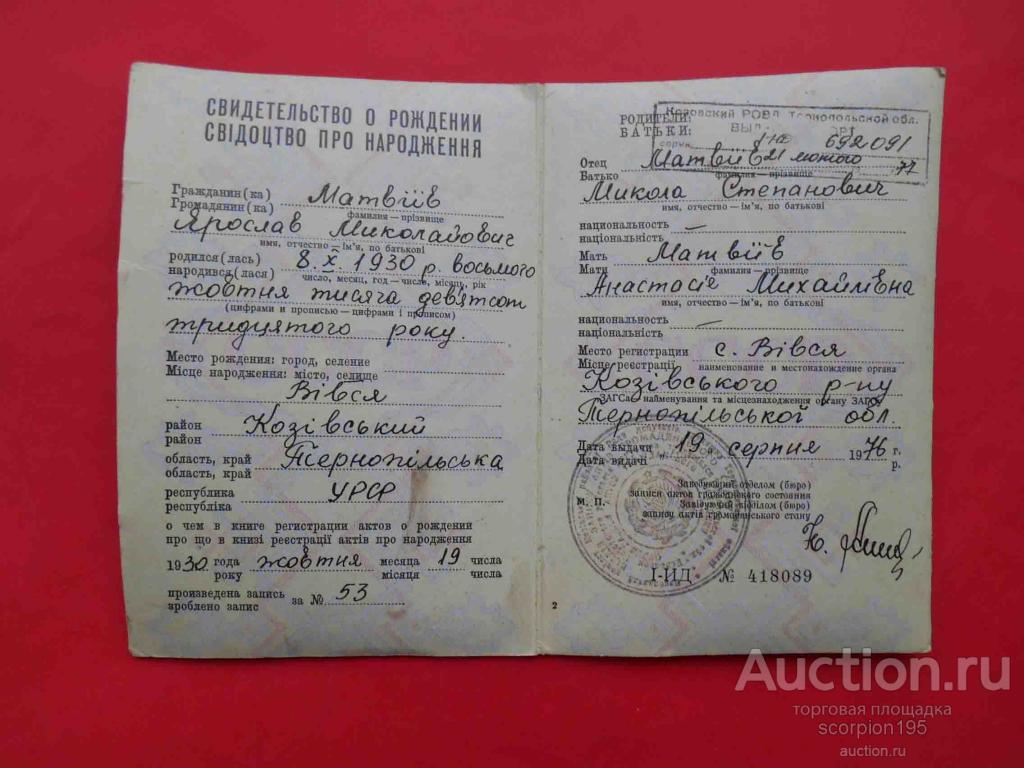 СВИДЕТЕЛЬСТВО О РОЖДЕНИИ
СВІДОЦТВО ПРО НАРОДЖЕННЯ
Гражданин(ка)
Громадянин(ка)
Матвіїв
фамилия — прізвище
Ярослав Миколайович
имя, отчество — ім'я, по батькові
родился(лась)
народився(лася)
8.X.1930 р. восьмого
число, месяц, год — число, місяць, рік
жовтня тисяча девятсот
(цифрами и прописью — цифрами і прописом)
тридцятого року.
Место рождения: город, селение
Місце народження: місто, селище
Вівся
район
район
Козівський
область, край
область, край
Тернопільська
республика
республіка
УРСР
о чем в книге регистрации актов о рождении
про що в книзі реєстрації актів про народження
1930 года жовтня месяца 19 числа
року місяця числа
произведена запись
зроблено запис
за № 53
РОДИТЕЛИ:
БАТЬКИ:
Козовский РОВД Тернопольской обл.
692091
21 лютого 77
Отец
Батько
Матвіїв
фамилия — прізвище
Микола Степанович
имя, отчество — ім'я, по батькові
национальность —
національність
Мать
Мати
Матвіїв
фамилия — прізвище
Анастасіє Михайлівна
имя, отчество — ім'я, по батькові
национальность —
національність
Место регистрации с. Вівся
Місце реєстрації наименование и местонахождение органа
Козівського р-ну
ЗАГСа — найменування та місцезнаходження органу ЗАГСу
Тернопільської обл.
Дата выдачи
Дата видачі
„19" серпня 1976 г.
р.
Заведующий отделом (бюро)
записи актов гражданского состояния
М. П. Завідуючий відділом (бюро)
запису актів громадянського стану
I-ИД № 418089
2
Auction.ru
торговая площадка
scorpion195
auction.ru